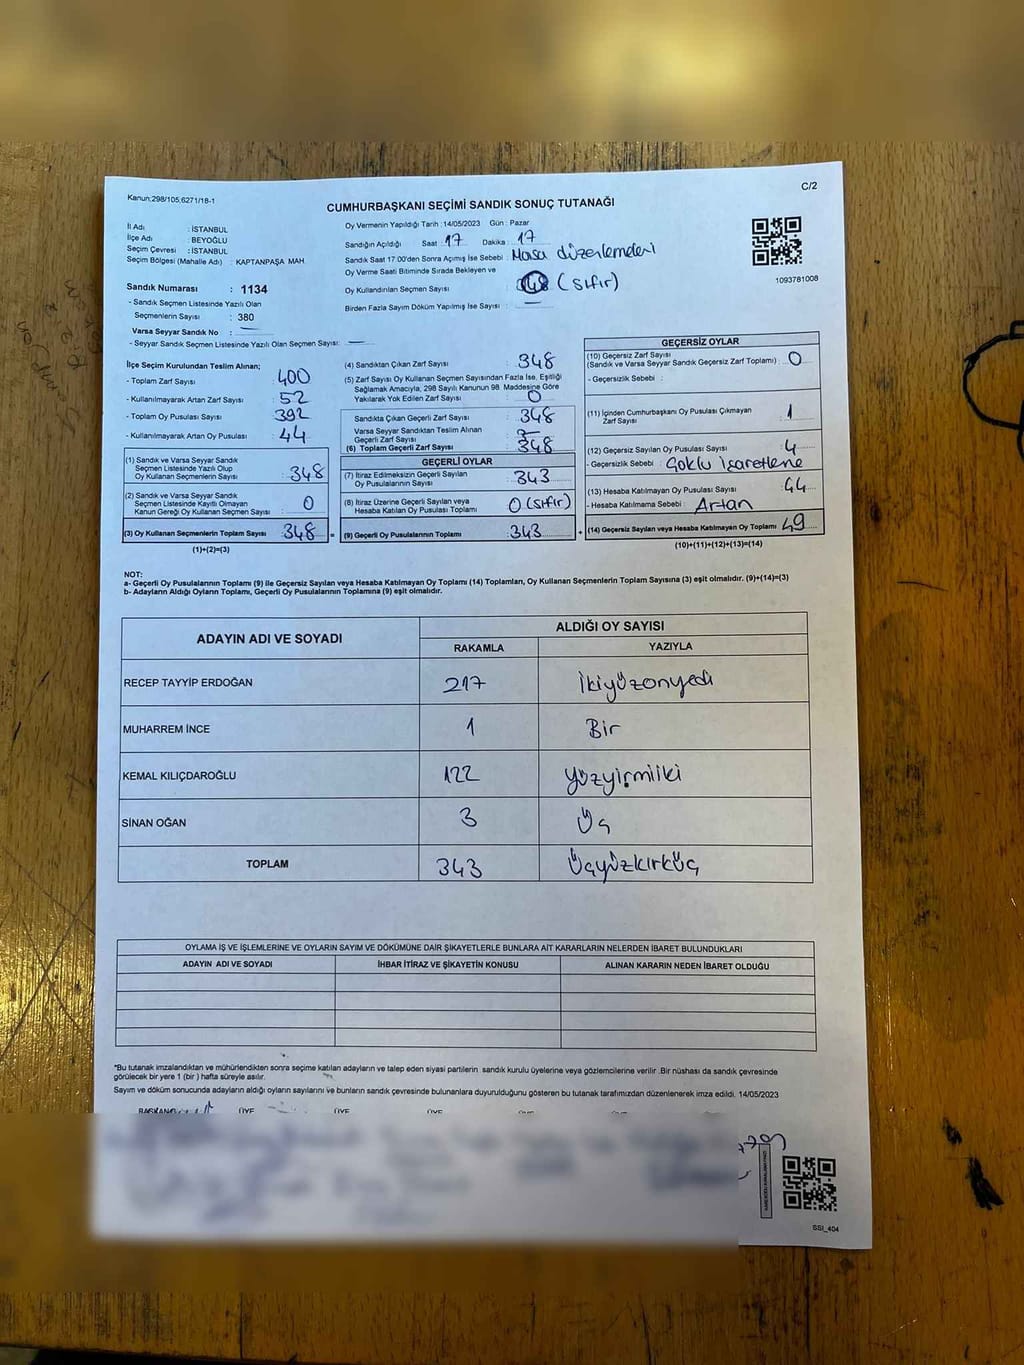 C/2
Kanun:298/105;6271/18-1
CUMHURBAŞKANI SEÇİMİ SANDIK SONUÇ TUTANAĞI
İl Adı : İSTANBUL
İlçe Adı : BEYOĞLU
Seçim Çevresi : İSTANBUL
Seçim Bölgesi (Mahalle Adı) : KAPTANPAŞA MAH.
Sandık Numarası : 1134
- Sandık Seçmen Listesinde Yazılı Olan
Seçmenlerin Sayısı : 380
Varsa Seyyar Sandık No :
- Seyyar Sandık Seçmen Listesinde Yazılı Olan Seçmen Sayısı:
Oy Vermenin Yapıldığı Tarih :14/05/2023 Gün : Pazar
Sandığın Açıldığı Saat : 17 Dakika : 17
Sandık Saat 17.00'den Sonra Açımış İse Sebebi : Masa düzenlemeleri
Oy Verme Saati Bitiminde Sırada Bekleyen ve
Oy Kullandırılan Seçmen Sayısı : (Sıfır)
Birden Fazla Sayım Döküm Yapılmış İse Sayısı :
1093781008
İlçe Seçim Kurulundan Teslim Alınan;
- Toplam Zarf Sayısı : 400
- Kullanılmayarak Artan Zarf Sayısı : 52
- Toplam Oy Pusulası Sayısı : 392
- Kullanılmayarak Artan Oy Pusulası : 44
(1) Sandık ve Varsa Seyyar Sandık
Seçmen Listesinde Yazılı Olup
Oy Kullanan Seçmenlerin Sayısı : 348
(2) Sandık ve Varsa Seyyar Sandık
Seçmen Listesinde Kayıtlı Olmayan
Kanun Gereği Oy Kullanan Seçmen Sayısı : 0
(3) Oy Kullanan Seçmenlerin Toplam Sayısı : 348
(1)+(2)=(3)
(4) Sandıktan Çıkan Zarf Sayısı : 348
(5) Zarf Sayısı Oy Kullanan Seçmen Sayısından Fazla İse, Eşitliği
Sağlamak Amacıyla, 298 Sayılı Kanunun 98. Maddesine Göre
Yakılarak Yok Edilen Zarf Sayısı : 0
Sandıkta Çıkan Geçerli Zarf Sayısı : 348
Varsa Seyyar Sandıktan Teslim Alınan
Geçerli Zarf Sayısı :
(6) Toplam Geçerli Zarf Sayısı : 348
GEÇERLİ OYLAR
(7) İtiraz Edilmeksizin Geçerli Sayılan
Oy Pusulalarının Sayısı : 343
(8) İtiraz Üzerine Geçerli Sayılan veya
Hesaba Katılan Oy Pusulaları Toplamı : 0 (Sıfır)
= (9) Geçerli Oy Pusulalarının Toplamı : 343 +
GEÇERSİZ OYLAR
(10) Geçersiz Zarf Sayısı
(Sandık ve Varsa Seyyar Sandık Geçersiz Zarf Toplamı) : 0
- Geçersizlik Sebebi :
(11) İçinden Cumhurbaşkanı Oy Pusulası Çıkmayan
Zarf Sayısı : 1
(12) Geçersiz Sayılan Oy Pusulası Sayısı : 4
- Geçersizlik Sebebi : Çoklu İşaretleme
(13) Hesaba Katılmayan Oy Pusulası Sayısı : 44
- Hesaba Katılmama Sebebi : Artan
(14) Geçersiz Sayılan veya Hesaba Katılmayan Oy Toplamı : 49
(10)+(11)+(12)+(13)=(14)
NOT:
a- Geçerli Oy Pusulalarının Toplamı (9) ile Geçersiz Sayılan veya Hesaba Katılmayan Oy Toplamı (14) Toplamları, Oy Kullanan Seçmenlerin Toplam Sayısına (3) eşit olmalıdır. (9)+(14)=(3)
b- Adayların Aldığı Oyların Toplamı, Geçerli Oy Pusulalarının Toplamına (9) eşit olmalıdır.
ADAYIN ADI VE SOYADI ALDIĞI OY SAYISI
RAKAMLA YAZIYLA
RECEP TAYYİP ERDOĞAN 217 İkiyüzonyedi
MUHARREM İNCE 1 Bir
KEMAL KILIÇDAROĞLU 122 Yüzyirmiiki
SİNAN OĞAN 3 Üç
TOPLAM 343 Üçyüzkırküç
OYLAMA İŞ VE İŞLEMLERİNE VE OYLARIN SAYIM VE DÖKÜMÜNE DAİR ŞİKAYETLERLE BUNLARA AİT KARARLARIN NELERDEN İBARET BULUNDUKLARI
ADAYIN ADI VE SOYADI İHBAR İTİRAZ VE ŞİKAYETİN KONUSU ALINAN KARARIN NEDEN İBARET OLDUĞU
*Bu tutanak imzalandıktan ve mühürlendikten sonra seçime katılan adayların ve talep eden siyasi partilerin sandık kurulu üyelerine veya gözlemcilerine verilir .Bir nüshası da sandık çevresinde
görülecek bir yere 1 (bir ) hafta süreyle asılır.
Sayım ve döküm sonucunda adayların aldığı oyların sayılarını ve bunların sandık çevresinde bulunanlara duyurulduğunu gösteren bu tutanak tarafımızdan düzenlenerek imza edildi. 14/05/2023
BAŞKAN ÜYE ÜYE ÜYE
SSI_404